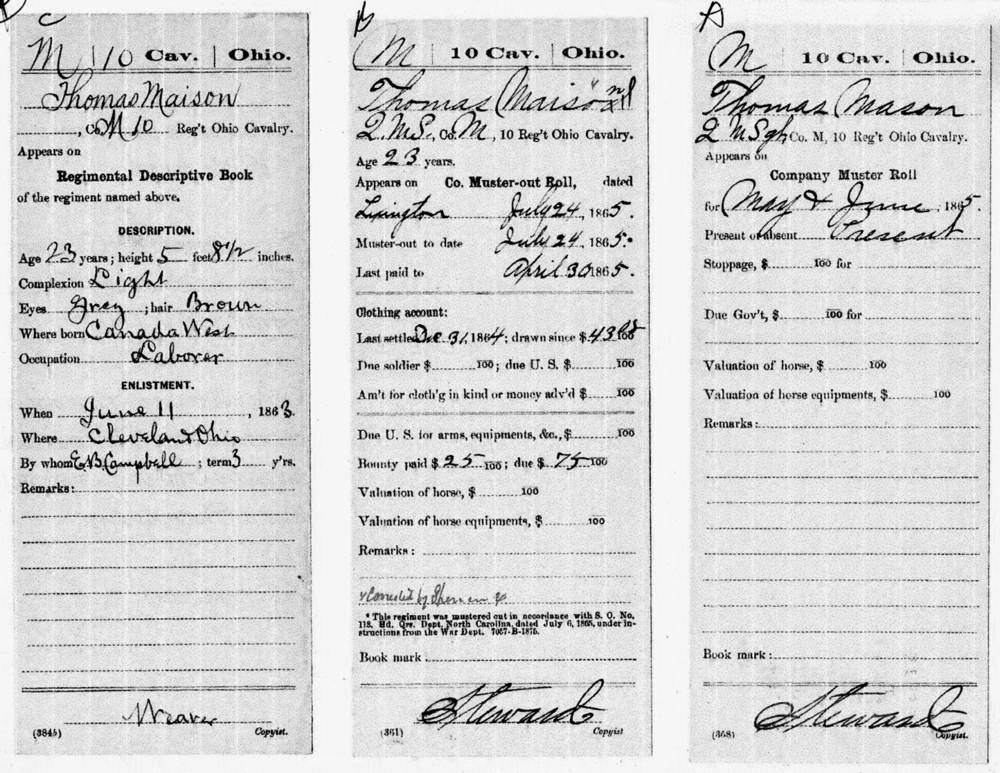 C
M | 10 Cav. | Ohio.
Thomas Maison
, Co. M 10 Reg't Ohio Cavalry.
Appears on
Regimental Descriptive Book
of the regiment named above.
DESCRIPTION.
Age 23 years; height 5 feet 8 1/2 inches.
Complexion Light
Eyes Grey ; hair Brown
Where born Canada West
Occupation Laborer
ENLISTMENT.
When June 11 , 1863.
Where Cleveland Ohio
By whom E.B. Campbell ; term 3 y'rs.
Remarks:
Weaver
(3845) Copyist.
M | 10 Cav. | Ohio.
Thomas Maison
Q.M.S., Co. M, 10 Reg't Ohio Cavalry.
Age 23 years.
Appears on Co. Muster-out Roll, dated
Lexington July 24, 1865.
Muster-out to date July 24, 1865.*
Last paid to April 30 1865.
Clothing account:
Last settled Dec 31, 1864; drawn since $ 43 100
Due soldier $ 100; due U. S. $ 100
Am't for cloth'g in kind or money adv'd $ 100
Due U. S. for arms, equipments, &c., $ 100
Bounty paid $ 25 100; due $ 75 100
Valuation of horse, $ 100
Valuation of horse equipments, $ 100
Remarks:
* This regiment was mustered out in accordance with S. O. No.
113, Hd. Qrs. Dept. North Carolina, dated July 6, 1865, under in-
structions from the War Dept. 7057-B-1875.
Book mark:
Steward
(361) Copyist
A
M | 10 Cav. | Ohio.
Thomas Mason
Q M Sgt, Co. M, 10 Reg't Ohio Cavalry.
Appears on
Company Muster Roll
for May & June, 1865.
Present or absent Present
Stoppage, $ 100 for
Due Gov't, $ 100 for
Valuation of horse, $ 100
Valuation of horse equipments, $ 100
Remarks:
Book mark:
Steward
(368) Copyist.